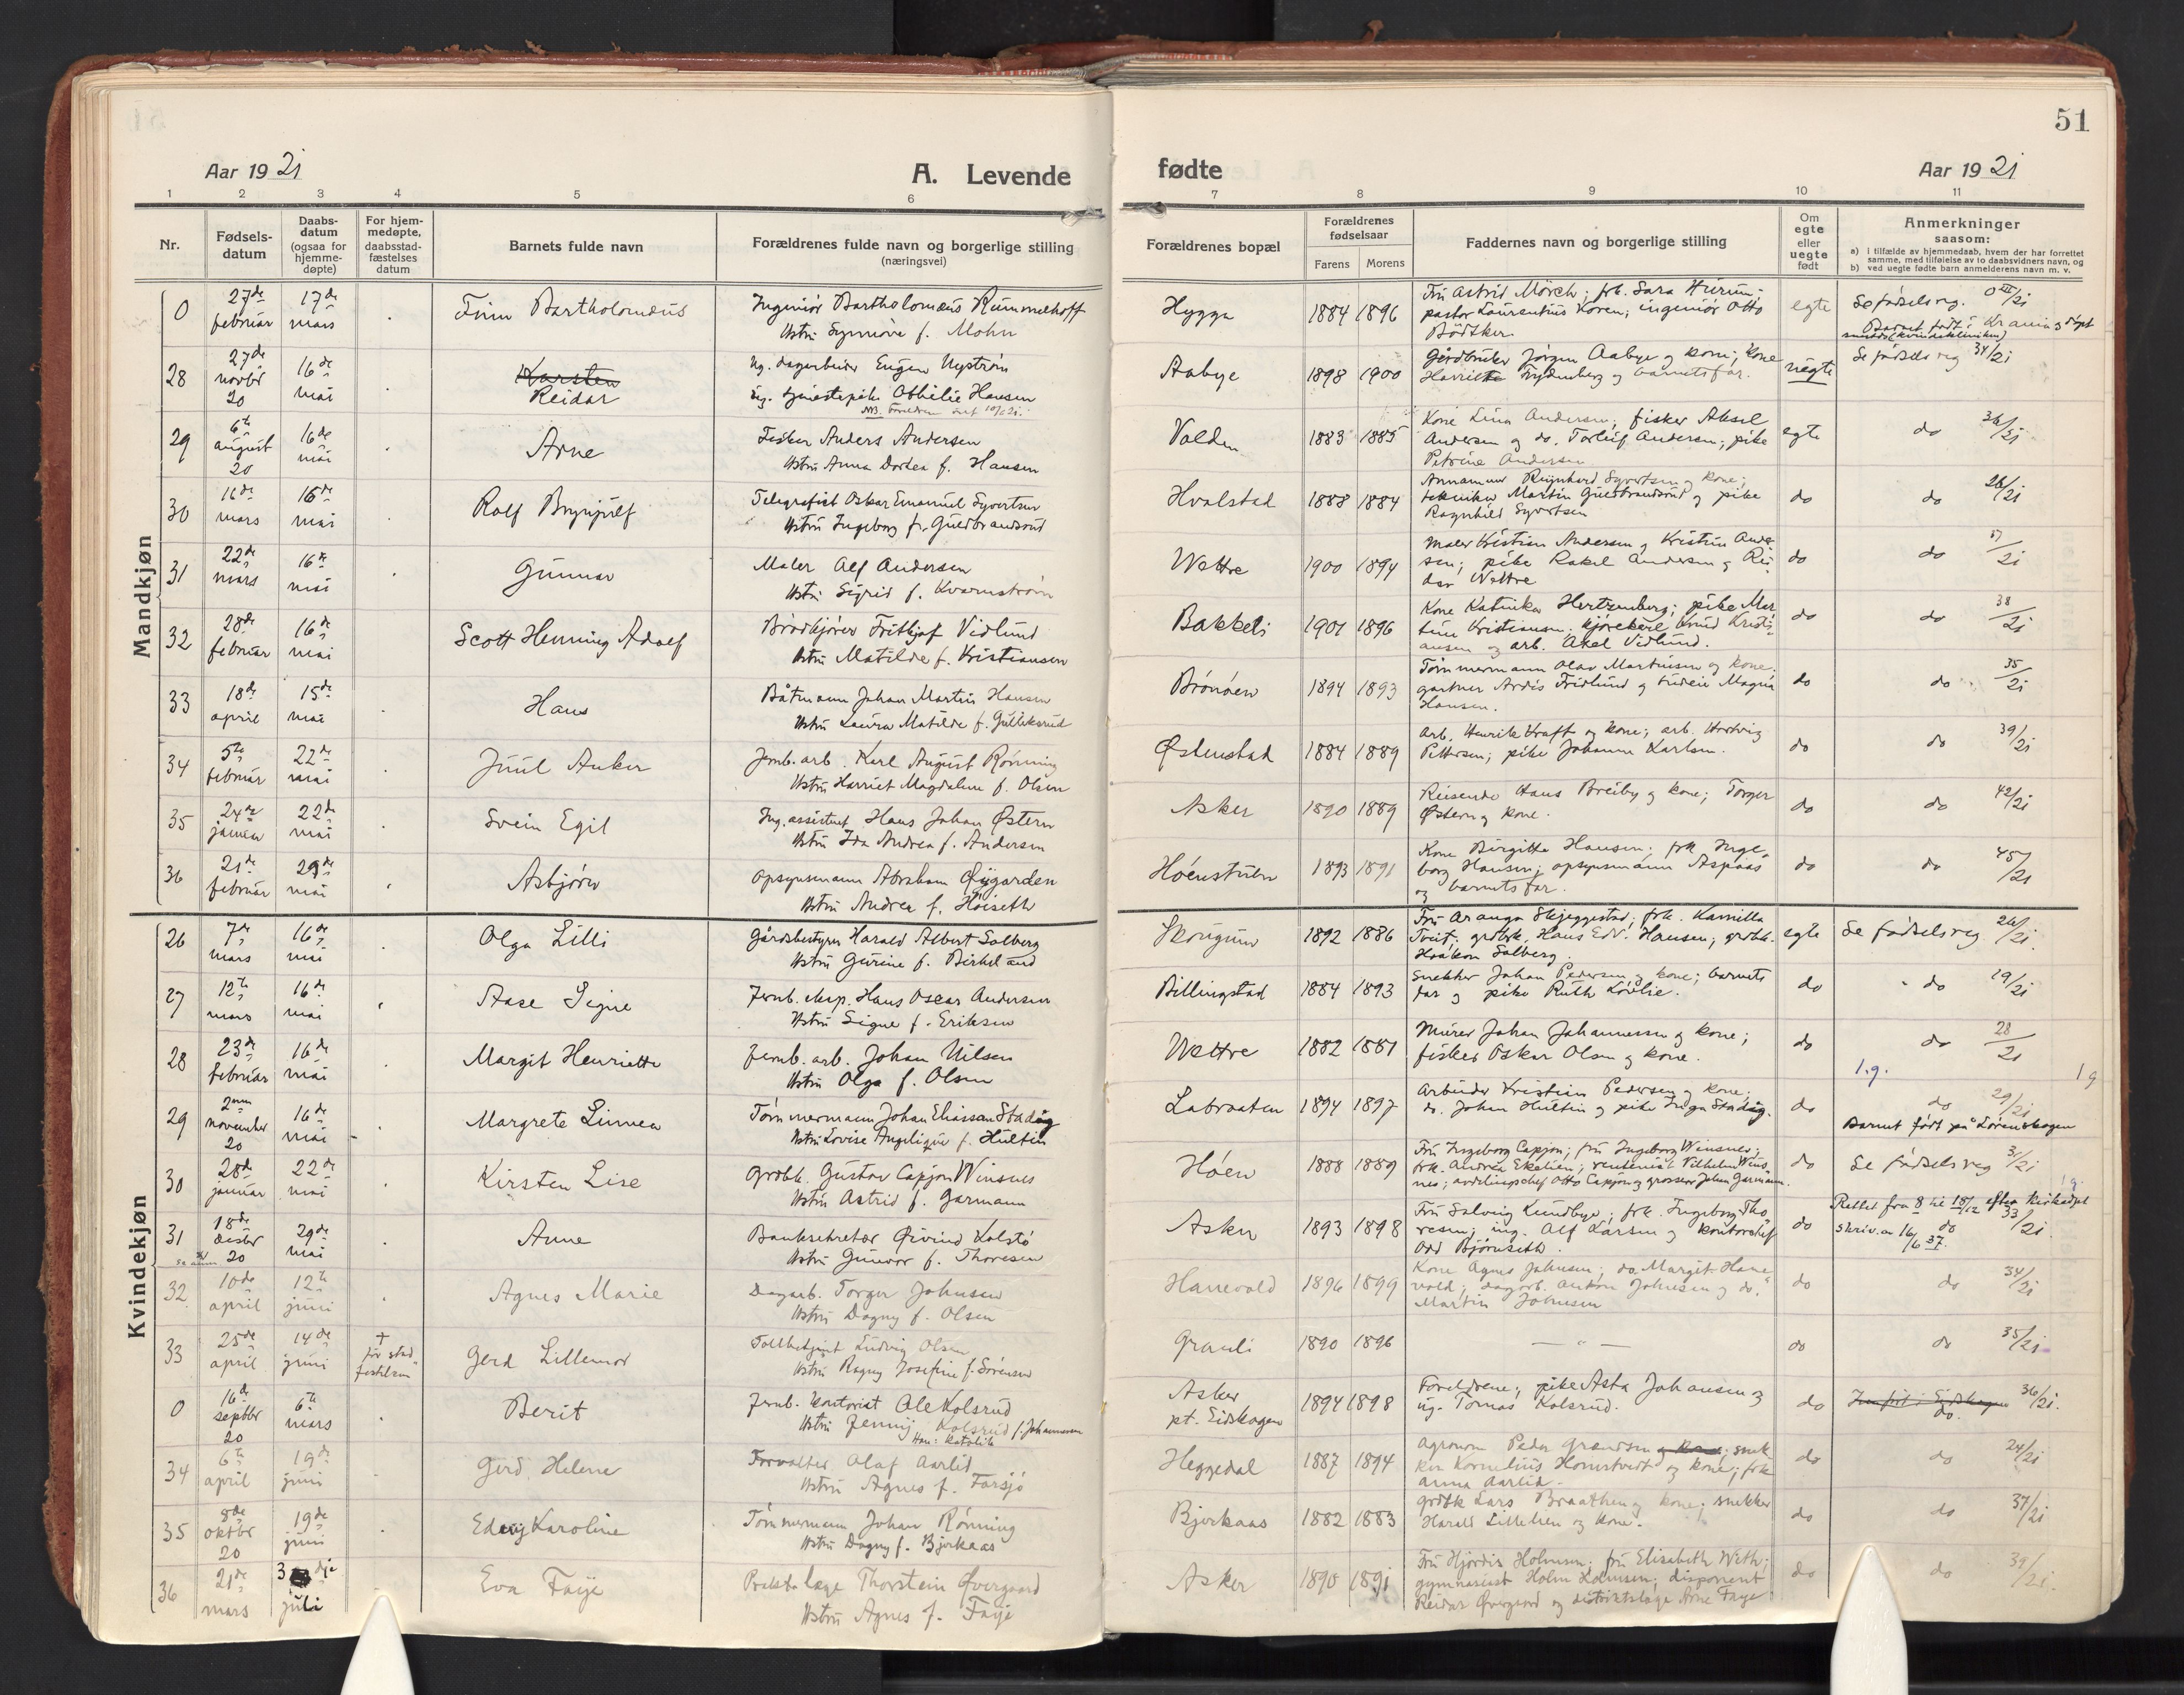 51
Aar 1921
A. Levende
fødte
Aar 1921
1 2 3 4 5 6 7 8 9 10 11
Nr.
Fødsels-
datum
Daabs-
datum
(ogsaa for
hjemme-
døpte)
For hjem-
medøpte,
daabsstad-
fæstelses
datum
Barnets fulde navn
Forældrenes fulde navn og borgerlige stilling
(næringsvei)
Forældrenes bopæl
Forældrenes
fødselsaar
Farens Morens
Faddernes navn og borgerlige stilling
Om
egte
eller
uegte
født
Anmerkninger
saasom:
a) i tilfælde av hjemmedaab, hvem der har forrettet
samme, med tilføielse av to daabsvidners navn, og
b) ved uegte fødte barn anmelderens navn m. v.
Mandkjøn
0 27de februar 17de mars Finn Bartholomæus
Ingeniør Bartholomæus Rummelhoff
Hstru Synnøve f. Mohn
Hygga 1884 1896
Fru Astrid Mörch; frk. Sara Hurum;
pastor Laurentius Koren; ingeniør Otto
Bödtker.
egte Se fødselsreg.
28 27de novbr 20 16de mai Karsten
Reidar
Ug. dagarbeider Eugen Nystrøm
ug. tjenestepike Othilie Hansen
Aabye 1898 1900
Gårdbruker Jörgen Aabye og kone; kone
Harriette Frydenberg og barnets far.
uegte Se fødselsreg 34/21
29 6te august 20 16de mai Arne
Fisker Anders Andersen
Hstru Anna Dortea f. Hansen
Valden 1883 1885
Kone Lina Andersen; fisker Aksel
Andersen og do. Torleif Andersen; pike
Petrine Andersen
egte do 36/21
30 16de mars 16de mai Rolf Brynjulf
Telegrafist Oskar Emanuel Syvertsen
Hstru Ingeborg f. Guldbrandsrud
Hvalstad 1888 1884
Reinhard Syvertsen og kone;
tekniker Martin Guldbrandsrud og pike
Ragnhild Syvertsen
do do 28/21
31 22de mars 16de mai Gunnar
Maler Alf Andersen
Hstru Sigrid f. Kvarnström
Wettre 1900 1894
Maler Kristian Andersen og Kristine Ander-
sen; pike Rakel Andersen og Rei-
dar Wettre
do do 37/21
32 28de februar 16de mai Scott Henning Adolf
Brödkjörer Fritjof Vidlund
Hstru Matilde f. Kristiansen
Bakkeli 1901 1896
Kone Katinka Hertzenberg; pike Mar-
tine Kristiansen; kjörekarl Knud Kristi-
ansen og arb. Aksel Vidlund.
do do 38/21
33 18de april 15de mai Hans
Båtmann Johan Martin Hansen
Hstru Laura Matilde f. Gulliksrud
Brönöen 1894 1893
Tömmermann Olav Martinsen og kone;
gartner Ardis Fridlund og Magna
Hansen.
do do 35/21
34 5te februar 22de mai Juul Anker
Jernb. arb. Karl August Rönning
Hstru Harriet Magdalene f. Olsen
Østenstad 1884 1889
Arb. Henrik Kraft og kone; arb. Hartvig
Pettersen; pike Johanne Karlsen.
do do 39/21
35 24de januar 22de mai Svein Egil
Ing. assistent Hans Johan Østern
Hstru Ida Andrea f. Andersen
Asker 1890 1889
Reisende Hans Breiby og kone; Torger
Østern og kone.
do do 42/21
36 21de februar 29de mai Asbjørn
Opsynsmann Abraham Øygarden
Hstru Andrea f. Höiseth
Höenstuen 1893 1891
Kone Birgitte Hansen; frk Inge-
borg Hansen; opsynsmann Aspaas
og barnets far.
do do 45/21
Kvindekjøn
26 7de mars 16de mai Olga Lilli
Gårdsbestyrer Harald Albert Solberg
Hstru Gurine f. Birkeland
Skougum 1892 1886
Fru Aranga Skjeggestad; frk. Kamilla
Tveit; grdbrk. Hans Edv. Hansen; grdbk.
Haakon Solberg.
egte Se fødselsreg 26/21.
27 12te mars 16de mai Aase Signe
Jernb. eksp. Hans Oscar Andersen
Hstru Signe f. Eriksen
Billingstad 1884 1893
Snekker Johan Pedersen og kone; barnets
far og pike Ruth Lövlie.
do do 19/21
28 23de februar 16de mai Margit Henriette
Jernb. arb. Johan Nilsen
Hstru Olga f. Olsen
Wettre 1882 1881
Murer Johan Johannessen og kone;
fisker Oskar Olsen og kone.
do do 28/21
1.g. 1 g
29 2nen november 20 16de mai Margrete Linnea
Tömmermann Johan Eliassen Stadig
Hstru Lovise Angelique f. Hultin
Labraaten 1894 1897
Arbeider Kristian Pedersen og kone;
do. Johan Hultin og pike Inga Stadig.
do do 29/21
Barnet født på Lörenskogen
30 28de januar 22de mai Kirsten Lise
Grdbk. Gustav Capjon Winsnes
Hstru Astrid f. Garmann
Höen 1888 1889
Fru Ingeborg Capjon; fru Ingeborg Winsnes;
frk. Andrea Ekelien; rentenist Vilhelm Wins-
nes; avdelingschef Otto Capjon og grosserer Johan Garmann.
do Se fødselsreg 3/21
31 18de desbr 20 29de mai Anne
Banksekretær Øivind Kolstö
Hstru Gunvor f. Thoresen
Asker 1893 1898
Fru Solveig Kundbye; frk. Ingeborg Tho-
resen; ing. Alf Larsen og kontorchef
Odd Bjørnseth.
do Rettet fra 8 til 18/12 efter kirkedpt
skriv. av 16/6 37. do 33/21.
32 10de april 12te juni Agnes Marie
Dagarb. Torger Johnsen
Hstru Dagny f. Olsen
Hanevold 1896 1899
Kone Agnes Johnsen; do. Margit Hane-
vold; dagarb. Anton Johnsen og do.
Martin Johnsen
do do 34/21
33 25de april 14de juni † för stad-
festelsen
Gerd Lillemor
Tollbetjent Ludvig Olsen
Hstru Ragny Josefine f. Sörensen
Grauli 1890 1896
— " —
do do 35/21
0 16de septbr 20 6te mars Berit
Jernb. kontorist Ole Kolsrud
Hstru Jenny Kolsrud f. Johannesen
Han: katolik
Asker
pt. Eidskogen
1894 1898
Foreldrene; pike Asta Johansen og
ug. Tomas Kolsrud.
do do. 36/21.
34 6te april 19de juni Gerd Helene
Forvalter Olaf Aarlid
Hstru Agnes f. Farsjö
Heggedal 1887 1894
Agronom Peder Grandsen og kone; snek-
ker Kornelius Homstvedt og kone; frk
Anna Aarlid.
do do 24/21
35 8de oktbr 20 19de juni Edny Karoline
Tömmermann Johan Rönning
Hstru Dagny f. Bjerkaas
Bjerkaas 1882 1883
Grdbk Lars Braathen og kone; snekker
Harald Lillelien og kone.
do do 37/21
36 21de mars 3dje juli Eva Faye
Praktc. læge Thorstein Øvergaard
Hstru Agnes f. Faye
Asker 1890 1891
Fru Hjördis Holmsen; fru Elisabeth Weth;
gymnasiast Holm Holmsen; disponent
Reidar Øvergaard og distriktslæge Arne Faye
do do 39/21.